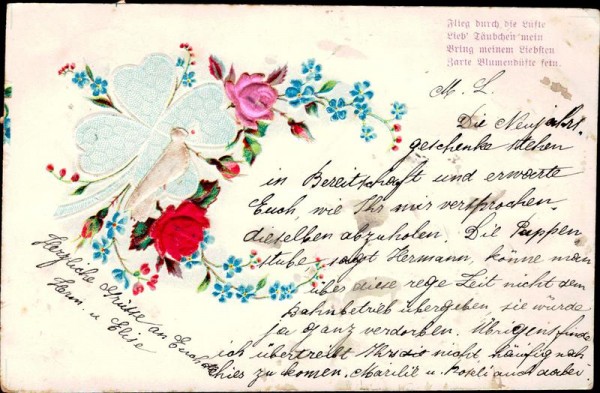 Flieg durch die Lüfte
Lieb' Täubchen mein
Bring meinem Liebsten
Zarte Blumendüfte fein.
M. L.
Die Neujahrs-
geschenke stehen
in Bereitschaft und erwarte
Euch, wie Ihr mir versprochen
dieselben abzuholen. Die Puppen
stube, sagt Hermann, könne man
über diese rege Zeit nicht dem
Bahnbetrieb übergeben, sie würde
ja ganz verdorben. Übrigens finde
ich übertreibt Ihr's nicht häufig nach
hies zu kommen. Marili u. auch dabei.
Herzliche Grüsse an Euch
Herm. u. Elise